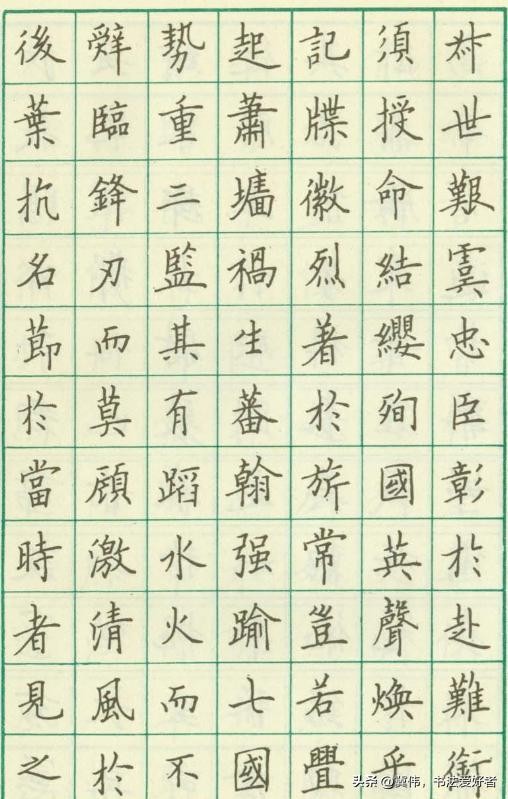 叔世艱虞忠臣彰於赴難銜
須授命結纓殉國英聲煥乎
記牒徽烈著於旂常豈若舋
起蕭墻禍生蕃翰强踰七國
勢重三監其有蹈水火而不
辭臨鋒刃而莫顧激清風於
後葉抗名節於當時者見之
头条 @冀伟，书法爱好者